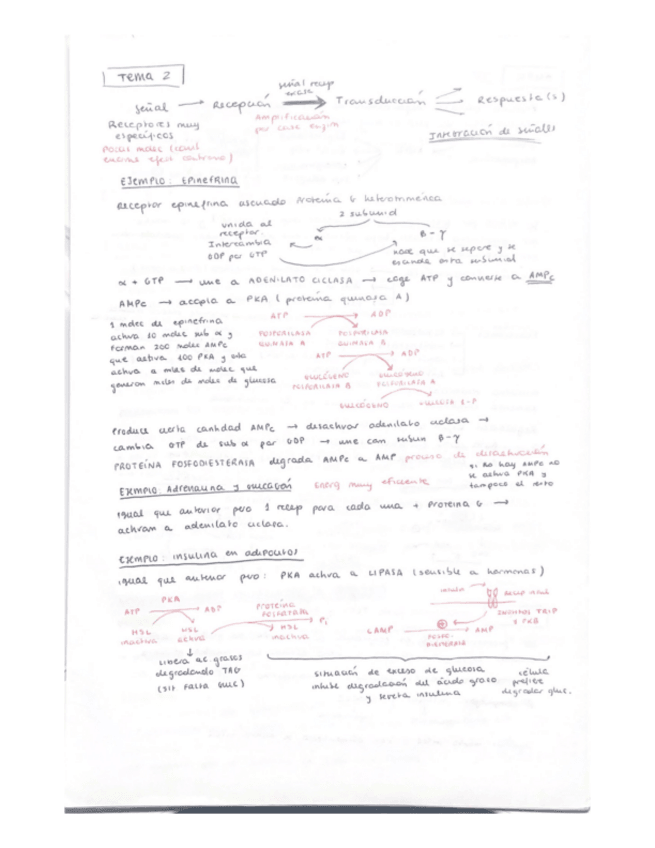 TEMA 2
señal → Recepción → Transducción → Respuesta(s)
señal recep
Receptores muy
específicos
Amplificación
por
Integración de señales
Pocas molec
EJEMPLO: EPINEFRINA
Receptor epinefrina asociado Proteína G heterotrimérica
2 subunid
unida al
receptor.
Intercambia
GDP por GTP
α
β-γ
hace que se separe y se
α + GTP → une a ADENILATO CICLASA → coge ATP y convierte a AMPc
AMPc → acopla a PKA (proteína quinasa A)
ATP → ADP
1 molec de epinefrina
activa 10 molec sub α y
forman 200 molec AMPc
que activa 100 PKA y esta
activa a miles de molec que
generan miles de molec de glucosa
FOSFORILASA
QUINASA B
FOSFORILASA
QUINASA A
ATP → ADP
GLUCÓGENO
FOSFORILASA B
GLUCÓGENO
FOSFORILASA A
GLUCÓGENO
Produce cierta cantidad AMPc → desactivar adenilato ciclasa →
cambia GTP de sub α por GDP → une con subun β-γ
PROTEÍNA FOSFODIESTERASA degrada AMPc a AMP proceso de desactivación
si no hay AMPc no
se activa PKA y
tampoco el resto
EJEMPLO: Adrenalina y glucagón
Energ muy eficiente
igual que anterior pero 1 recep para cada una + Proteína G →
activan a adenilato ciclasa.
EJEMPLO: insulina en adipocitos
igual que anterior pero: PKA activa a LIPASA (sensible a hormonas)
PKA
ATP → ADP
HSL
inactiva
HSL
activa
Proteína
fosfatasa
Pi
HSL
inactiva
cAMP → AMP
FOSFO-
DIESTERASA
Libera ac grasos
degradando TAG
(sit falta gluc)
situación de exceso de glucosa
inhibe degradación del ácido graso
y secreta insulina
célula
prefiere
degradar gluc.